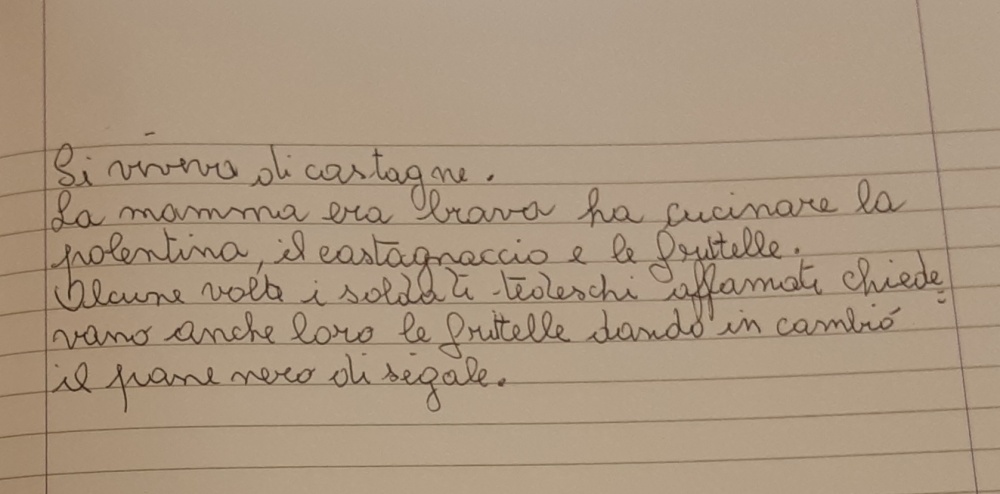 Si viveva di castagne.
La mamma era brava ha cucinare la
polentina, il castagnaccio e le frittelle.
Alcune volte i soldati tedeschi affamati chiede
vano anche loro le frittelle dando in cambio
il pane nero di segale.